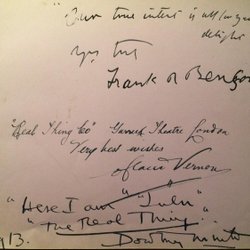 "Our true intent is all for your
delight
Frank R Benson
"Real Thing Co" Garrick Theatre London
Very best wishes
Vernon
"Here I am"
"The Real Thing".
13. Dorothy Minto